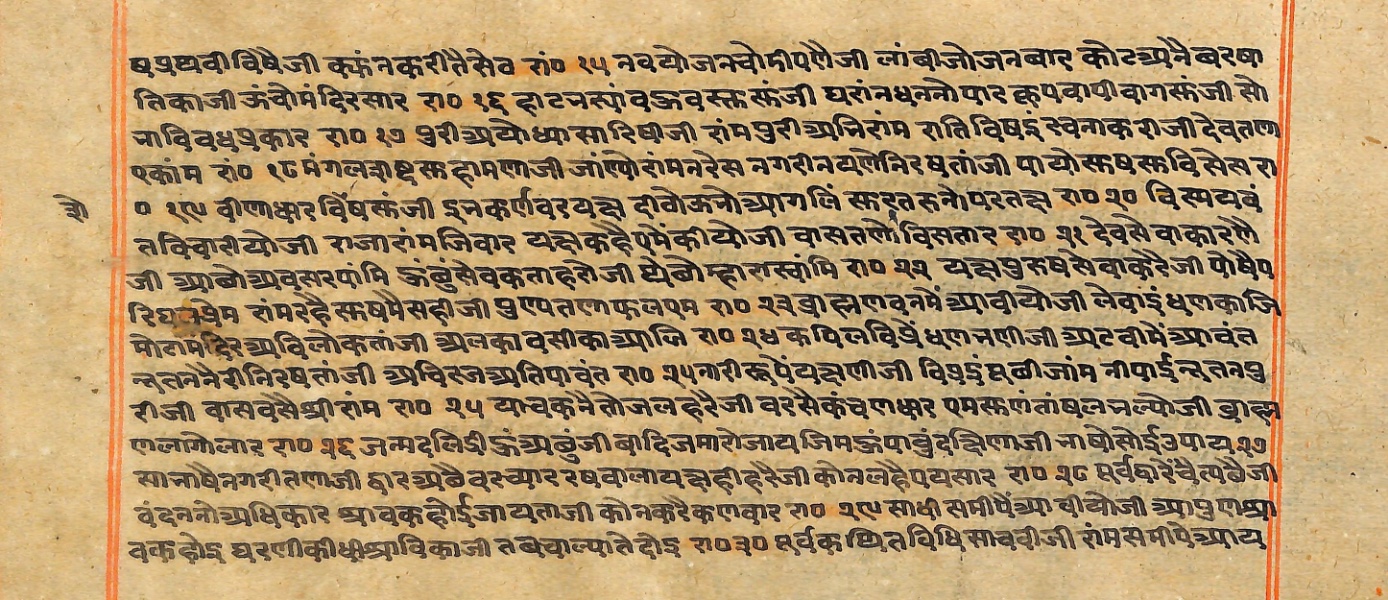 षपृथवी विषैजी क्यंन करी तै सेव रां० १५ नव योजन चोमी पणैजी लांबी जोजन बार कोट अनै बरषा
तिकाजी ऊंचो मंदिर सार रा० १६ हाट वस्त सुंजी घरां न धन नो पार कूप वापी वाग सुंजी सो
ना विवध प्रकार रा० १७ पुरी अयोध्या सारिषीजी रांमपुरी अभिरांम राति विषइं रचना करीजी देवतणा
ए कांम रां० १८ मंगल सुहामणाजी जांण्यो रांम नरेस नगरी नयणे निरषतांजी पायो सुष सुविसेस रा
० १९ वीणाधार विशेष सुंजी इनकर्ण वर यक्ष आगलिं रा० २० विस्मय वं
त विचारीयोजी राजा रांम जिवार यक्ष कहै एमें कीयोजी वासतणो विसतार रा० २१ देव सेवा कारणै
जी आवो अवसर पांमि हुं सेवक ताहरोजी म्हारा स्वांमि रा० २२ यक्ष पुरुष सेवा करैजी पोषै प
रिघल प्रेम रांम रहै सुषमै सहीजी पुण्य तणा फल एम रा० २३ ब्राह्मण वनमें आवीयोजी लेवा इंधण काजि
मोटा मंदिर अविलोकतांजी अलका वसी का आजि रा० २४ कपिल विप्रें भणीजी अटवीमें आवंत
नूतन नैरी निरषतांजी अचिरज अति पावंत रा० २५ नारी रूपें यक्षणीजी विप्रइं पूछी जांम नीपाई नूतन पु
रीजी वास वसै श्री रांम रा० २५ याचकनै तो जल हरैजी वरसै कंचण धार एम सुणंतां षलभल्योजी ब्राह्म
ण लागो लार रा० २६ जन्म दलिद्री हुं अबुंजी बादि जमारो जाय जिम हुं पावुं दक्षिणाजी भाषो सोई उपाय २७
सा भाषै नगरी तणाजी द्वार अछै वर च्यार रषवाला यक्ष ही हरैजी को न लहै पयसार रा० २८ पूर्व द्वारे चैत्य छैजी
वंदन नो अधिकार श्रावक होई जायताजी को न करै कणवार रा० २९ साधी समीपें आवीयोजी आपुण श्रा
वक होइ घरणी की धी श्राविकाजी तब चाल्या ते दोइ रा० ३० पूर्व कथित विधि साचवीजी रांम समीपे आय